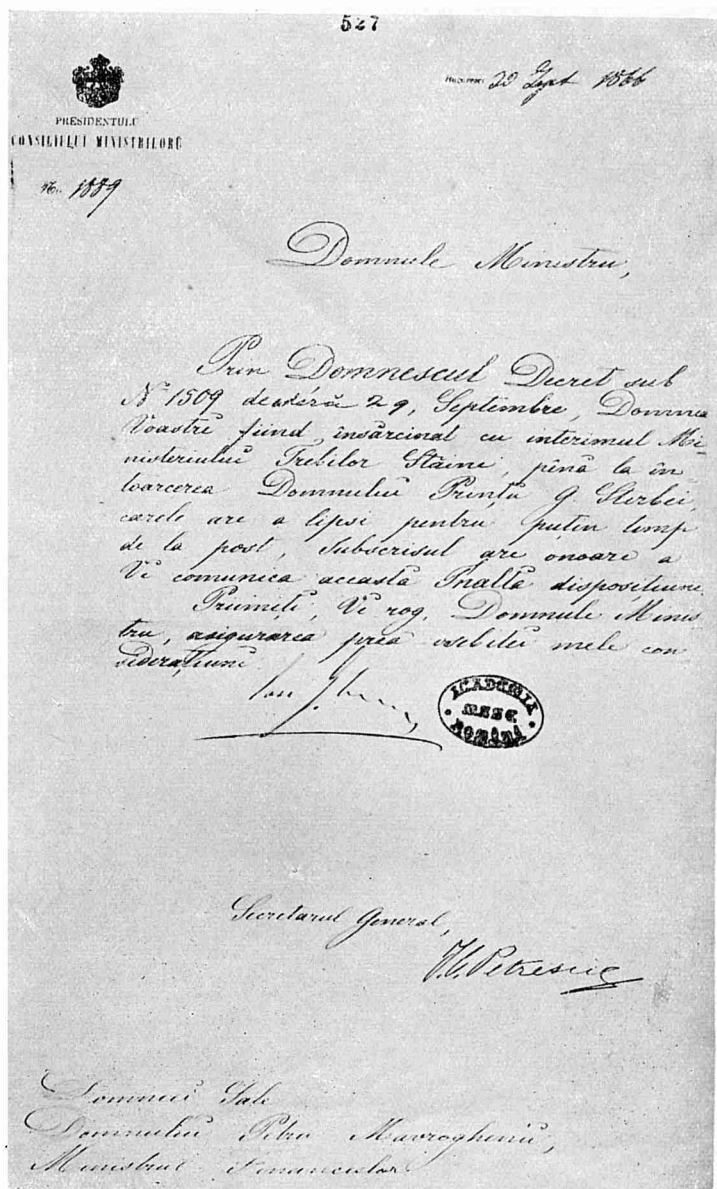 527
30 Sept 1866
PRESIDENTULU
CONSILIULUI MINISTRILORŬ
No. 1889
Domnule Ministru,
Prin Domnescul Decret sub
N 1509 de aséră 29, Septembre, Domnea
Voastră fiind însărcinat cu interimul Mi-
nisteriuluĭ Trebilor Străine, pînă la în-
toarcerea Domnuluĭ Prințu G. Sterbei,
carele are a lipsi pentru puțin timp
de la post, Subscrisul are onoare a
Vĕ comunica aceasta Înaltă dispositiune.
Priimițĭ, Vĕ rog, Domnule Minis
tru, asigurarea prea osebiteĭ mele con
siderațiunĭ.
Ion G.
ACADEMIA
ROMÂNĂ
Secretarul General,
Petrescu
Domnieĭ Sale
Domnuluĭ Petru Mavrogheniŭ,
Ministrul Financelor